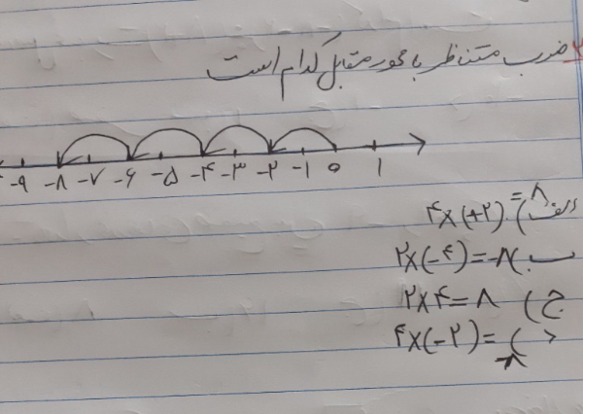 ۲ ضرب متناظر با محور مقابل کدام است
-۹ -۸ -۷ -۶ -۵ -۴ -۳ -۲ -۱ ۰ ۱
الف) ۴×(+۲)=۸
ب) ۲×(-۴)=-۸
ج) ۲×۴=۸
د) ۴×(-۲)=-۸